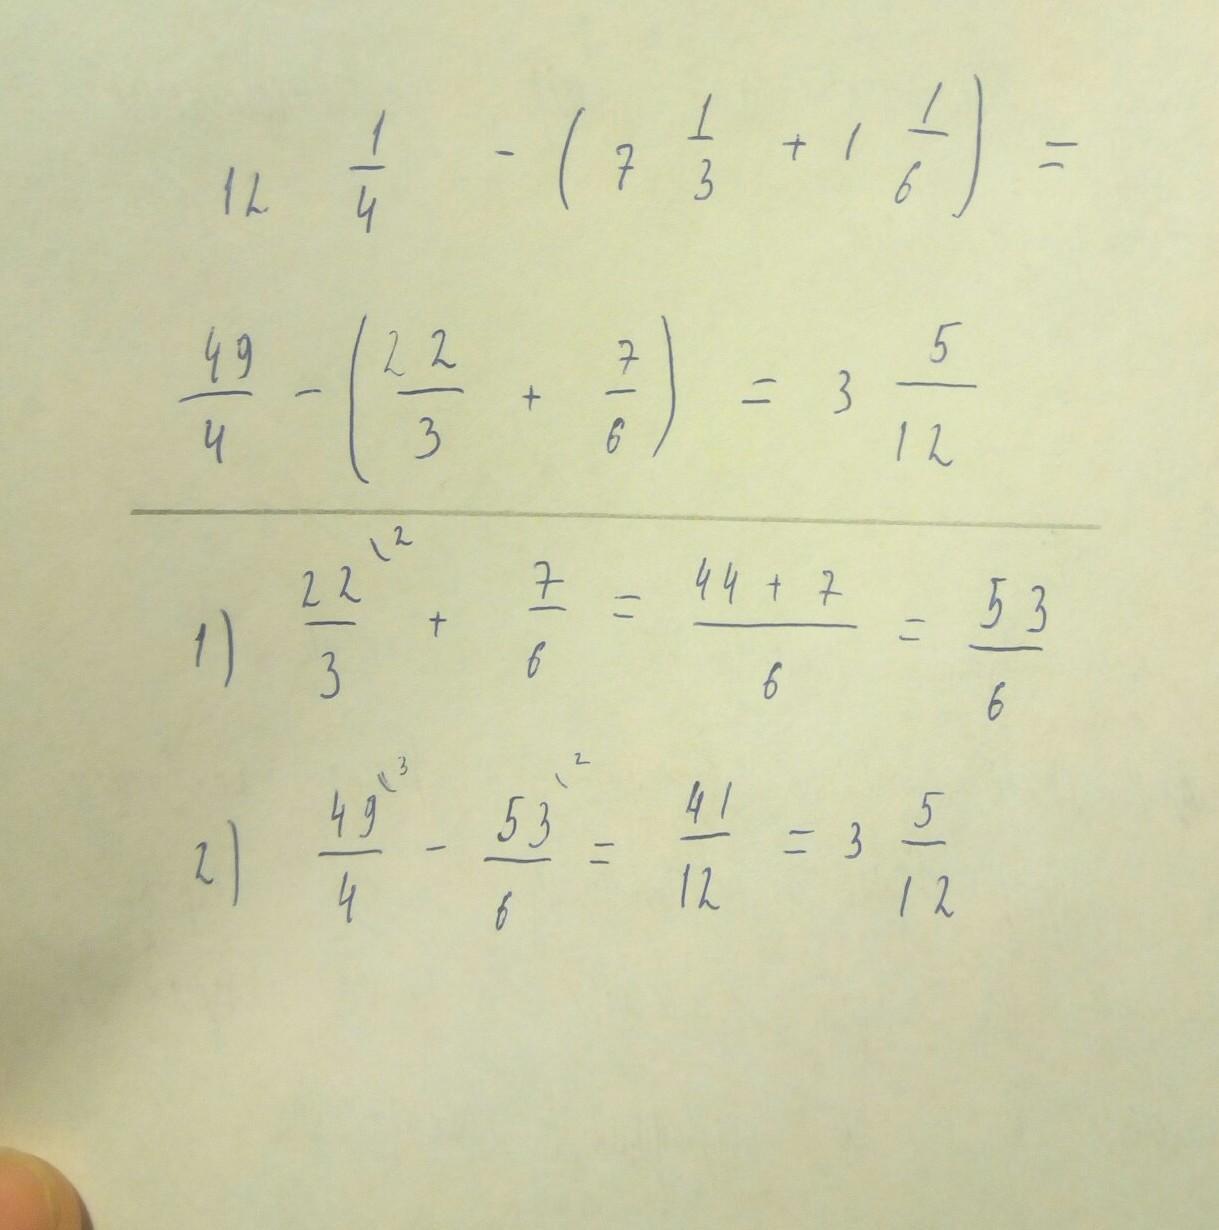 12 1/4 - ( 7 1/3 + 1 1/6 ) =
49/4 - ( 22/3 + 7/6 ) = 3 5/12
1) 22/3 \2 + 7/6 = 44 + 7/6 = 53/6
2) 49/4 \3 - 53/6 \2 = 41/12 = 3 5/12